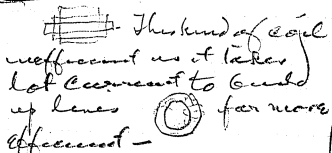 - This kind of coil
inefficient as it takes
lot current to build
up lines far more
efficient —